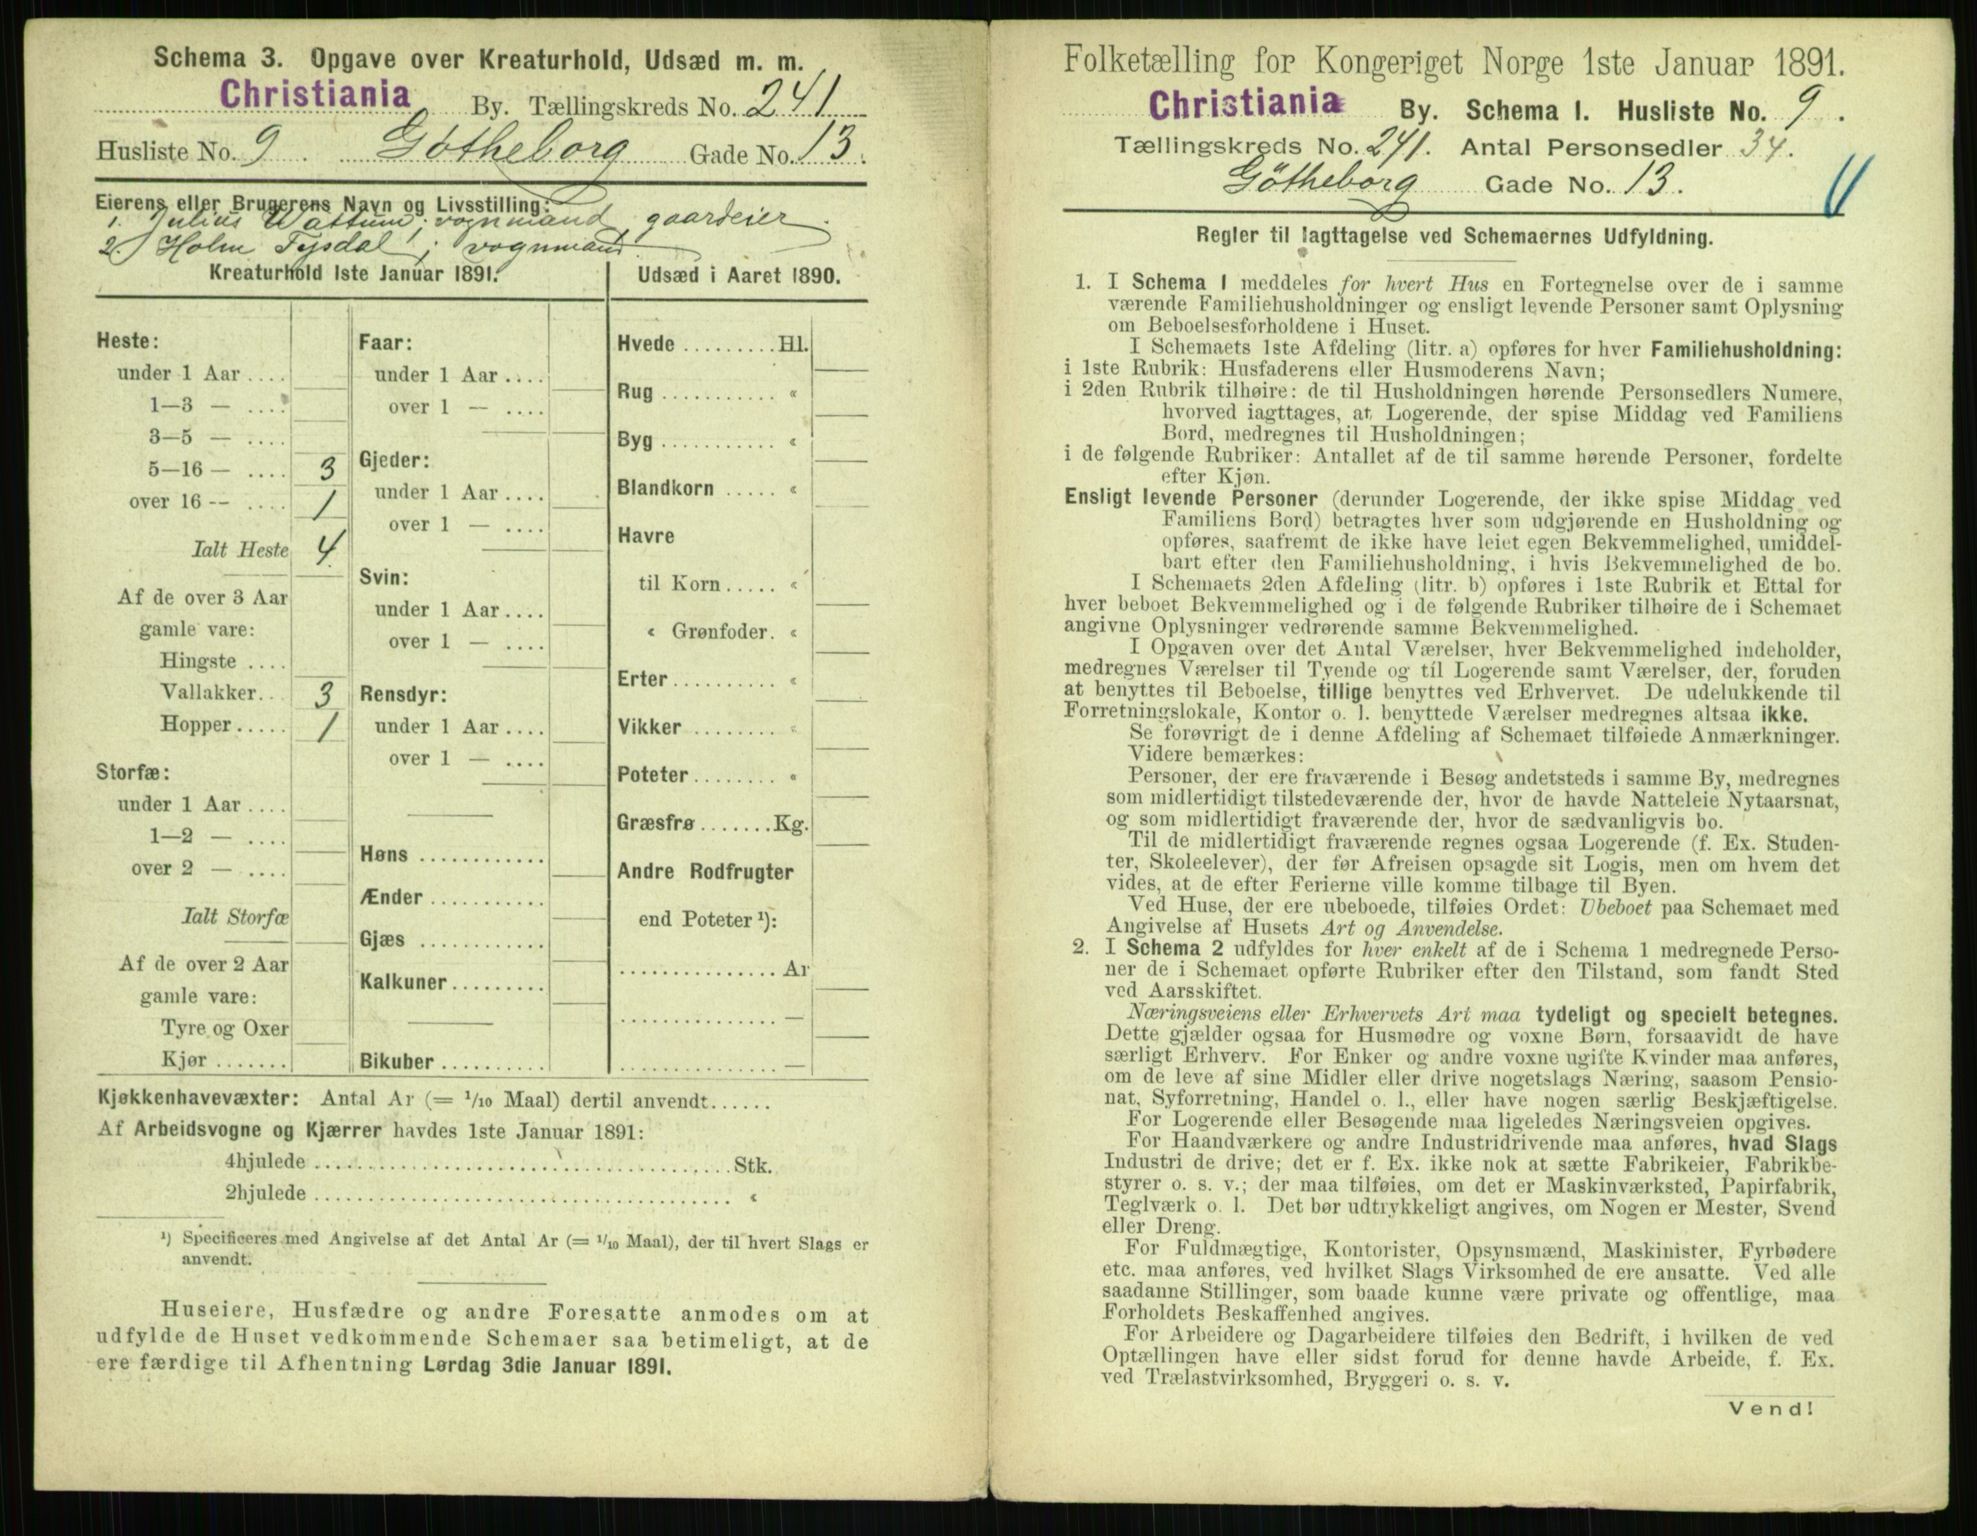 Schema 3. Opgave over Kreaturhold, Udsæd m. m.
Christiania By. Tællingskreds No. 241
Husliste No. 9. Gøtheborg Gade No. 13.
Eierens eller Brugerens Navn og Livsstilling:
1. Julius Wattum; vognmand, gaardeier.
2. Holm Tysdal; vognmand.
Kreaturhold 1ste Januar 1891.
Heste:
under 1 Aar....
1—3 — ....
3—5 — ....
5—16 — .... 3
over 16 -- .... 1
Ialt Heste 4
Af de over 3 Aar
gamle vare:
Hingste ....
Vallakker.. 3
Hopper..... 1
Storfæ:
under 1 Aar....
1—2 — ....
over 2 — ....
Ialt Storfæ
Af de over 2 Aar
gamle vare:
Tyre og Oxer
Kjør .......
Faar:
under 1 Aar....
over 1 — ....
Gjeder:
under 1 Aar....
over 1 — ....
Svin:
under 1 Aar....
over 1 — ....
Rensdyr:
under 1 Aar....
over 1 — ....
Høns ............
Ænder ...........
Gjæs ............
Kalkuner.........
Bikuber..........
Udsæd i Aaret 1890.
Hvede .........Hl.
Rug ........... «
Byg ........... «
Blandkorn ..... «
Havre
til Korn..... «
« Grønfoder. «
Erter.......... «
Vikker ........ «
Poteter........ «
Græsfrø .......Kg.
Andre Rodfrugter
end Poteter ¹):
...............Ar
...............—
...............—
Kjøkkenhavevæxter: Antal Ar (= 1/10 Maal) dertil anvendt......
Af Arbeidsvogne og Kjærrer havdes 1ste Januar 1891:
4hjulede ........................................Stk.
2hjulede ........................................ «
¹) Specificeres med Angivelse af det Antal Ar (= 1/10 Maal), der til hvert Slags er
anvendt.
Huseiere, Husfædre og andre Foresatte anmodes om at
udfylde de Huset vedkommende Schemaer saa betimeligt, at de
ere færdige til Afhentning Lørdag 3die Januar 1891.
Folketælling for Kongeriget Norge 1ste Januar 1891.
Christiania By. Schema I. Husliste No. 9.
Tællingskreds No. 241. Antal Personsedler 34.
Gøtheborg Gade No. 13.
Regler til Iagttagelse ved Schemaernes Udfyldning.
1. I Schema I meddeles for hvert Hus en Fortegnelse over de i samme
værende Familiehusholdninger og ensligt levende Personer samt Oplysning
om Beboelsesforholdene i Huset.
I Schemaets 1ste Afdeling (litr. a) opføres for hver Familiehusholdning:
i 1ste Rubrik: Husfaderens eller Husmoderens Navn;
i 2den Rubrik tilhøire: de til Husholdningen hørende Personsedlers Numere,
hvorved iagttages, at Logerende, der spise Middag ved Familiens
Bord, medregnes til Husholdningen;
i de følgende Rubriker: Antallet af de til samme hørende Personer, fordelte
efter Kjøn.
Ensligt levende Personer (derunder Logerende, der ikke spise Middag ved
Familiens Bord) betragtes hver som udgjørende en Husholdning og
opføres, saafremt de ikke have leiet egen Bekvemmelighed, umiddel-
bart efter den Familiehusholdning, i hvis Bekvemmelighed de bo.
I Schemaets 2den Afdeling (litr. b) opføres i 1ste Rubrik et Ettal for
hver beboet Bekvemmelighed og i de følgende Rubriker tilhøire de i Schemaet
angivne Oplysninger vedrørende samme Bekvemmelighed.
I Opgaven over det Antal Værelser, hver Bekvemmelighed indeholder,
medregnes Værelser til Tyende og til Logerende samt Værelser, der, foruden
at benyttes til Beboelse, tillige benyttes ved Erhvervet. De udelukkende til
Forretningslokale, Kontor o. l. benyttede Værelser medregnes altsaa ikke.
Se forøvrigt de i denne Afdeling af Schemaet tilføiede Anmærkninger.
Videre bemærkes:
Personer, der ere fraværende i Besøg andetsteds i samme By, medregnes
som midlertidigt tilstedeværende der, hvor de havde Natteleie Nytaarsnat,
og som midlertidigt fraværende der, hvor de sædvanligvis bo.
Til de midlertidigt fraværende regnes ogsaa Logerende (f. Ex. Studen-
ter, Skoleelever), der før Afreisen opsagde sit Logis, men om hvem det
vides, at de efter Ferierne ville komme tilbage til Byen.
Ved Huse, der ere ubeboede, tilføies Ordet: Ubeboet paa Schemaet med
Angivelse af Husets Art og Anvendelse.
2. I Schema 2 udfyldes for hver enkelt af de i Schema 1 medregnede Perso-
ner de i Schemaet opførte Rubriker efter den Tilstand, som fandt Sted
ved Aarsskiftet.
Næringsveiens eller Erhvervets Art maa tydeligt og specielt betegnes.
Dette gjælder ogsaa for Husmødre og voxne Børn, forsaavidt de have
særligt Erhverv. For Enker og andre voxne ugifte Kvinder maa anføres,
om de leve af sine Midler eller drive nogetslags Næring, saasom Pensio-
nat, Syforretning, Handel o. l., eller have nogen særlig Beskjæftigelse.
For Logerende eller Besøgende maa ligeledes Næringsveien opgives.
For Haandværkere og andre Industridrivende maa anføres, hvad Slags
Industri de drive; det er f. Ex. ikke nok at sætte Fabrikeier, Fabrikbe-
styrer o. s. v.; der maa tilføies, om det er Maskinværksted, Papirfabrik,
Teglværk o. l. Det bør udtrykkeligt angives, om Nogen er Mester, Svend
eller Dreng.
For Fuldmægtige, Kontorister, Opsynsmænd, Maskinister, Fyrbødere
etc. maa anføres, ved hvilket Slags Virksomhed de ere ansatte. Ved alle
saadanne Stillinger, som baade kunne være private og offentlige, maa
Forholdets Beskaffenhed angives.
For Arbeidere og Dagarbeidere tilføies den Bedrift, i hvilken de ved
Optællingen have eller sidst forud for denne havde Arbeide, f. Ex.
ved Trælastvirksomhed, Bryggeri o. s. v.
Vend!